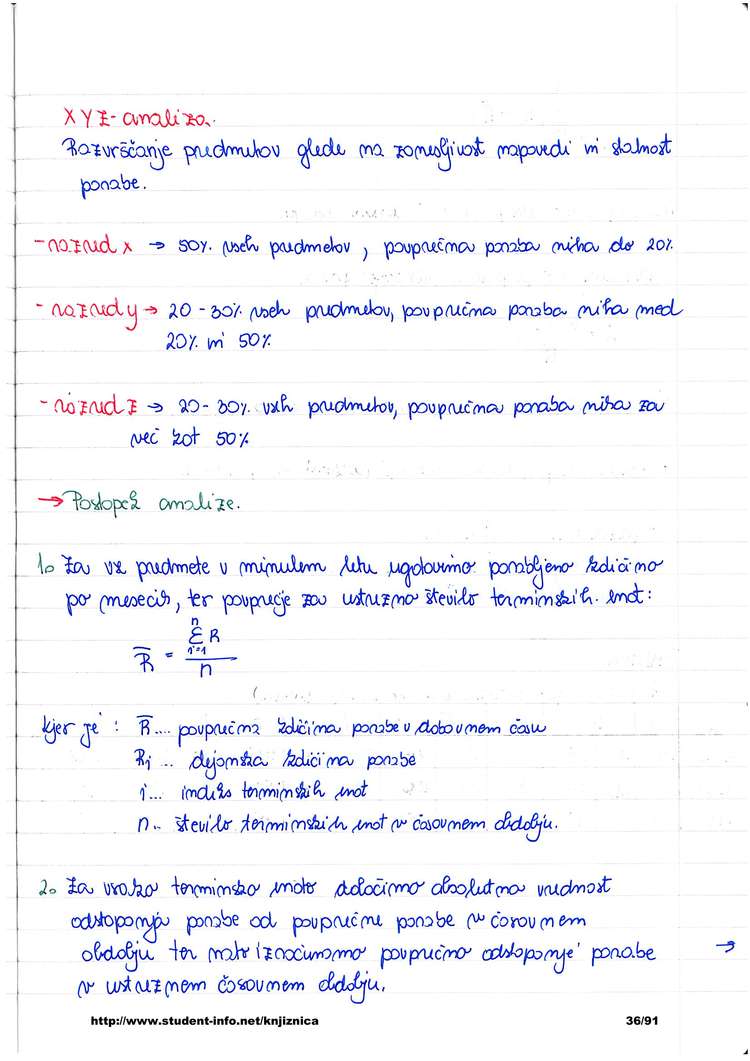 XYZ-analiza.
Razvrščanje predmetov glede na zanesljivost napovedi in stalnost
porabe.
- razred x → 50% vseh predmetov, povprečna poraba niha do 20%
- razred y → 20-30% vseh predmetov, povprečna poraba niha med
20% in 50%
- razred z → 20-30% vseh predmetov, povprečna poraba niha za
več kot 50%
→ Postopek analize.
1. Za vse predmete v minulem letu ugotovimo porabljeno količino
po mesecih, ter povprečje za ustrezno število terminskih enot:
R̅ = Σ i=1 n R / n
kjer je : R̅.... povprečna količina porabe v dobavnem času
Ri ... dejanska količina porabe
i... indeks terminskih enot
n.. število terminskih enot v časovnem obdobju.
2. Za vsako terminsko enoto določimo absolutna vrednost
odstopanja porabe od povprečne porabe v časovnem
obdobju ter nato izračunamo povprečno odstopanje porabe →
v ustreznem časovnem obdobju.
http://www.student-info.net/knjiznica 36/91